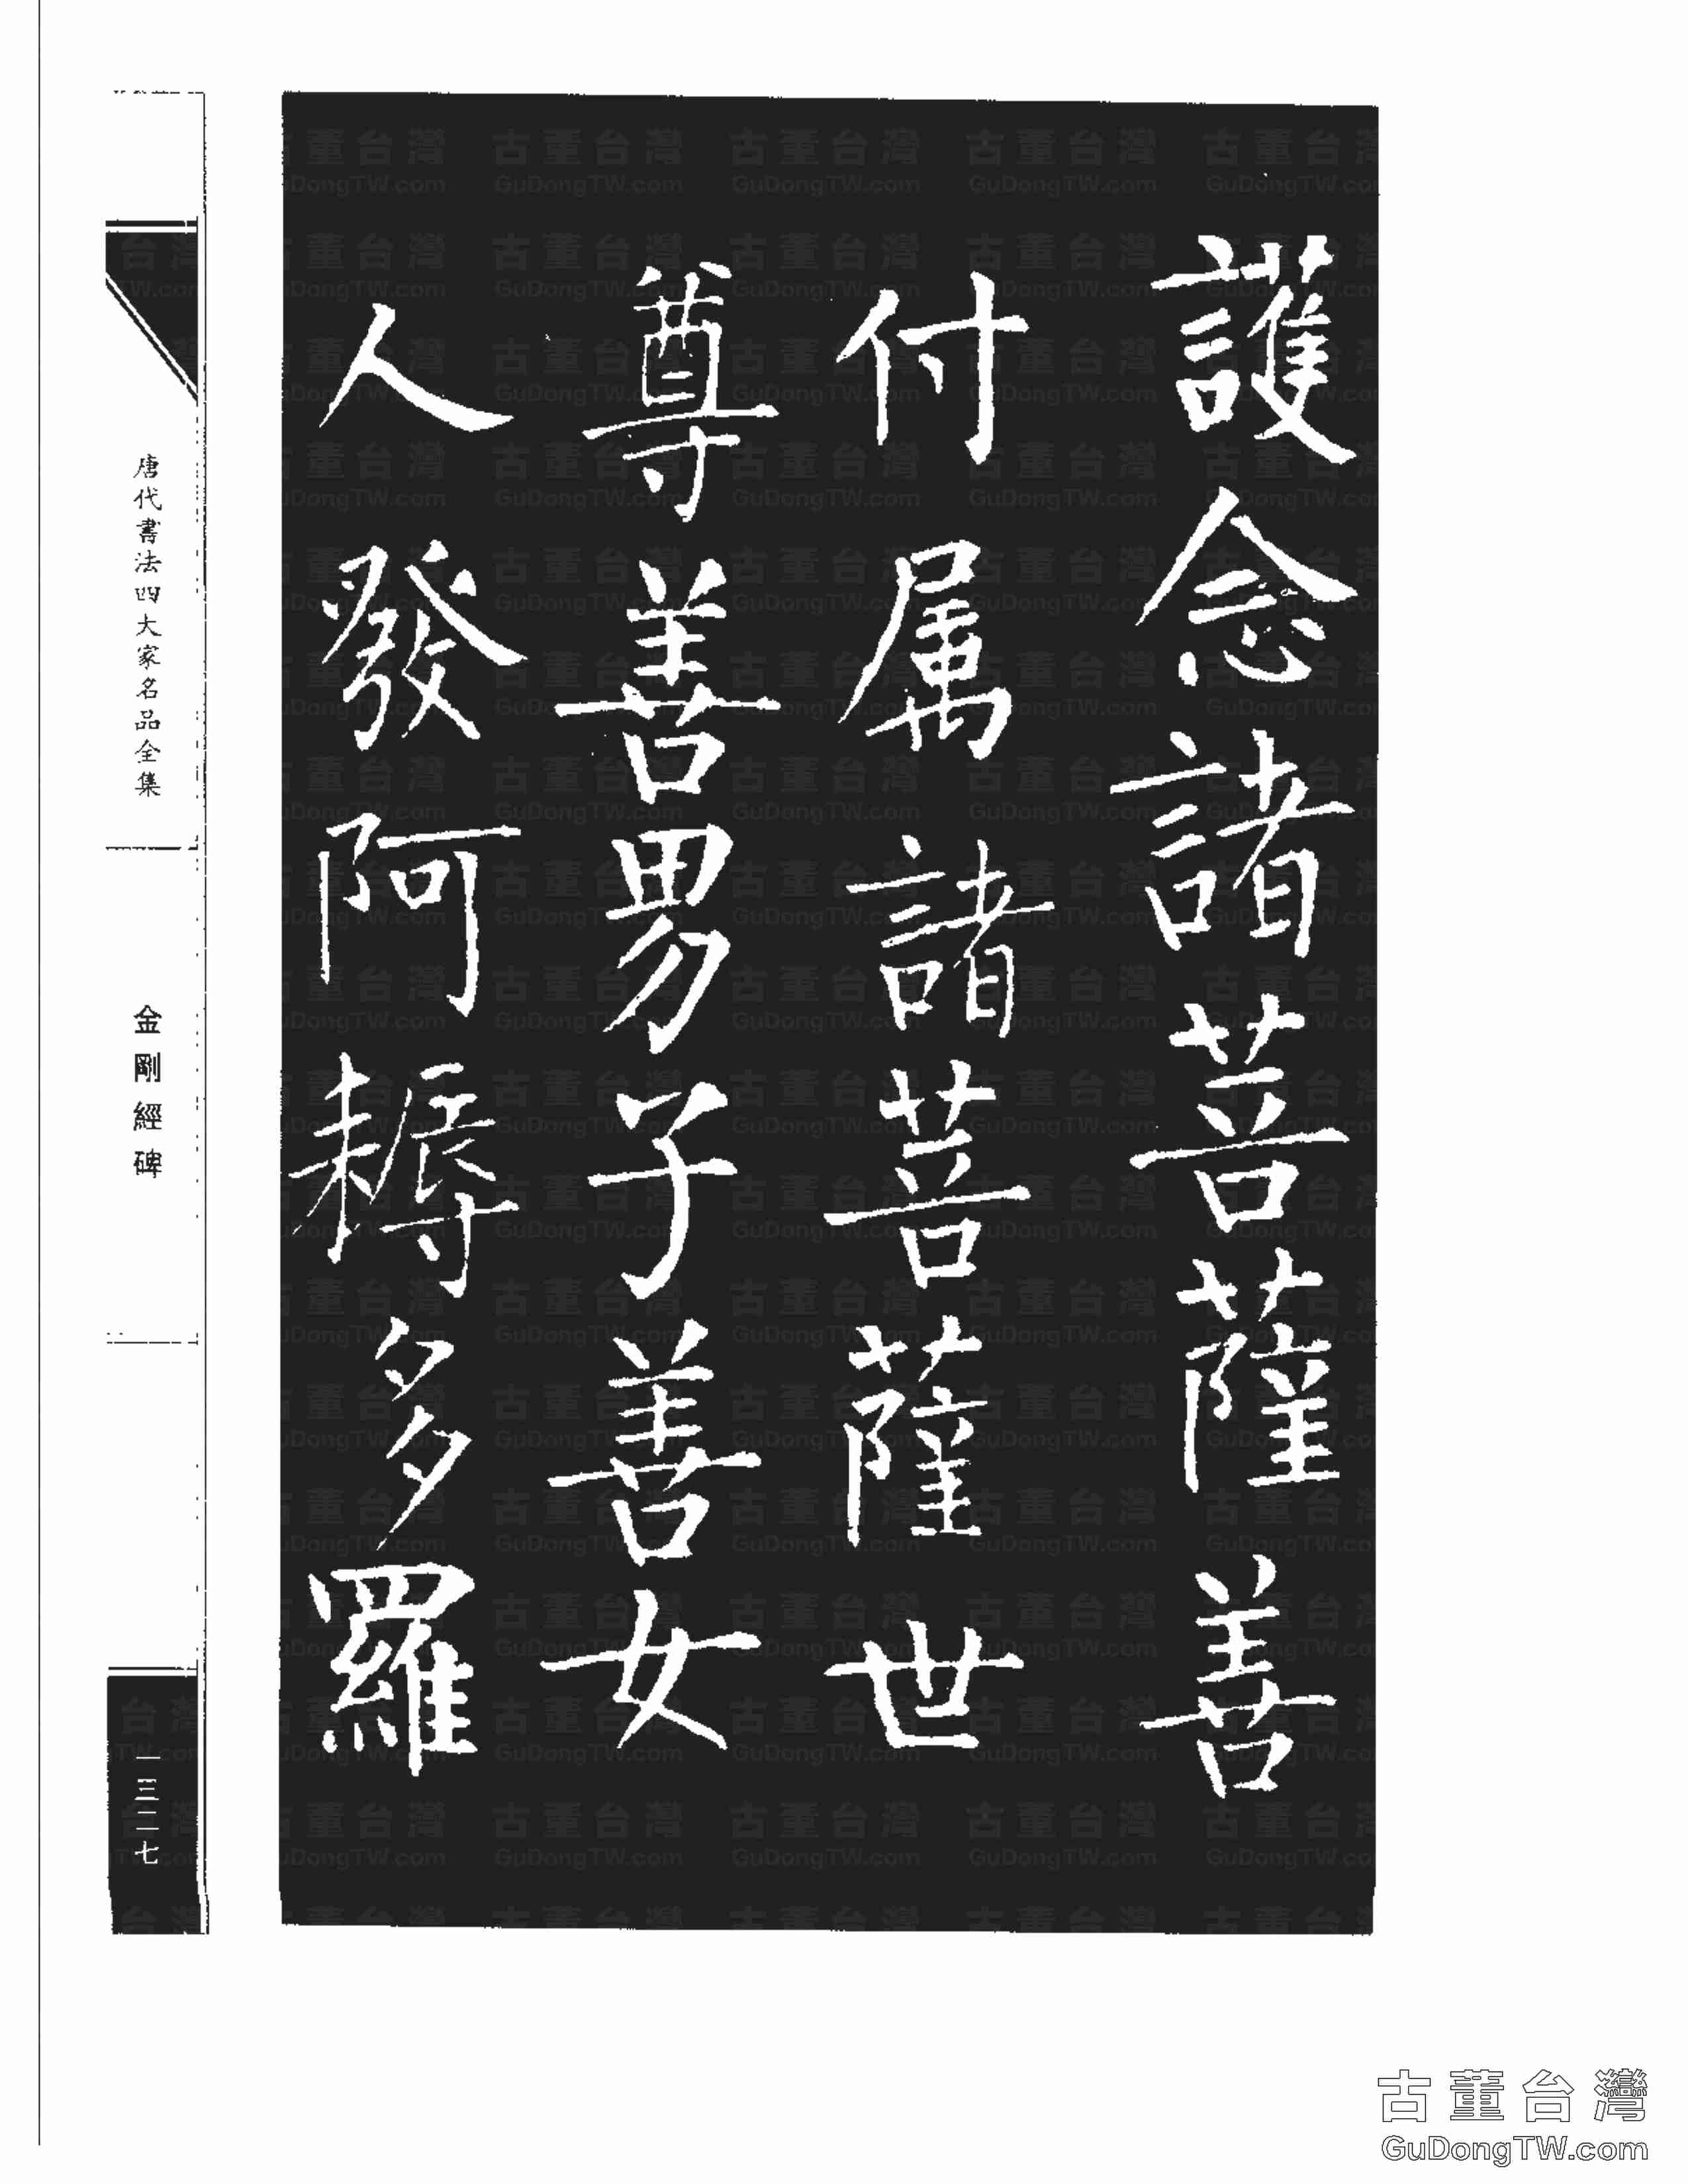 護念諸菩薩善
付属諸菩薩世
尊善男子善女
人發阿耨多羅
唐代書法四大家名品全集
金剛經碑
一三二七
古董台灣
GuDongTW.com